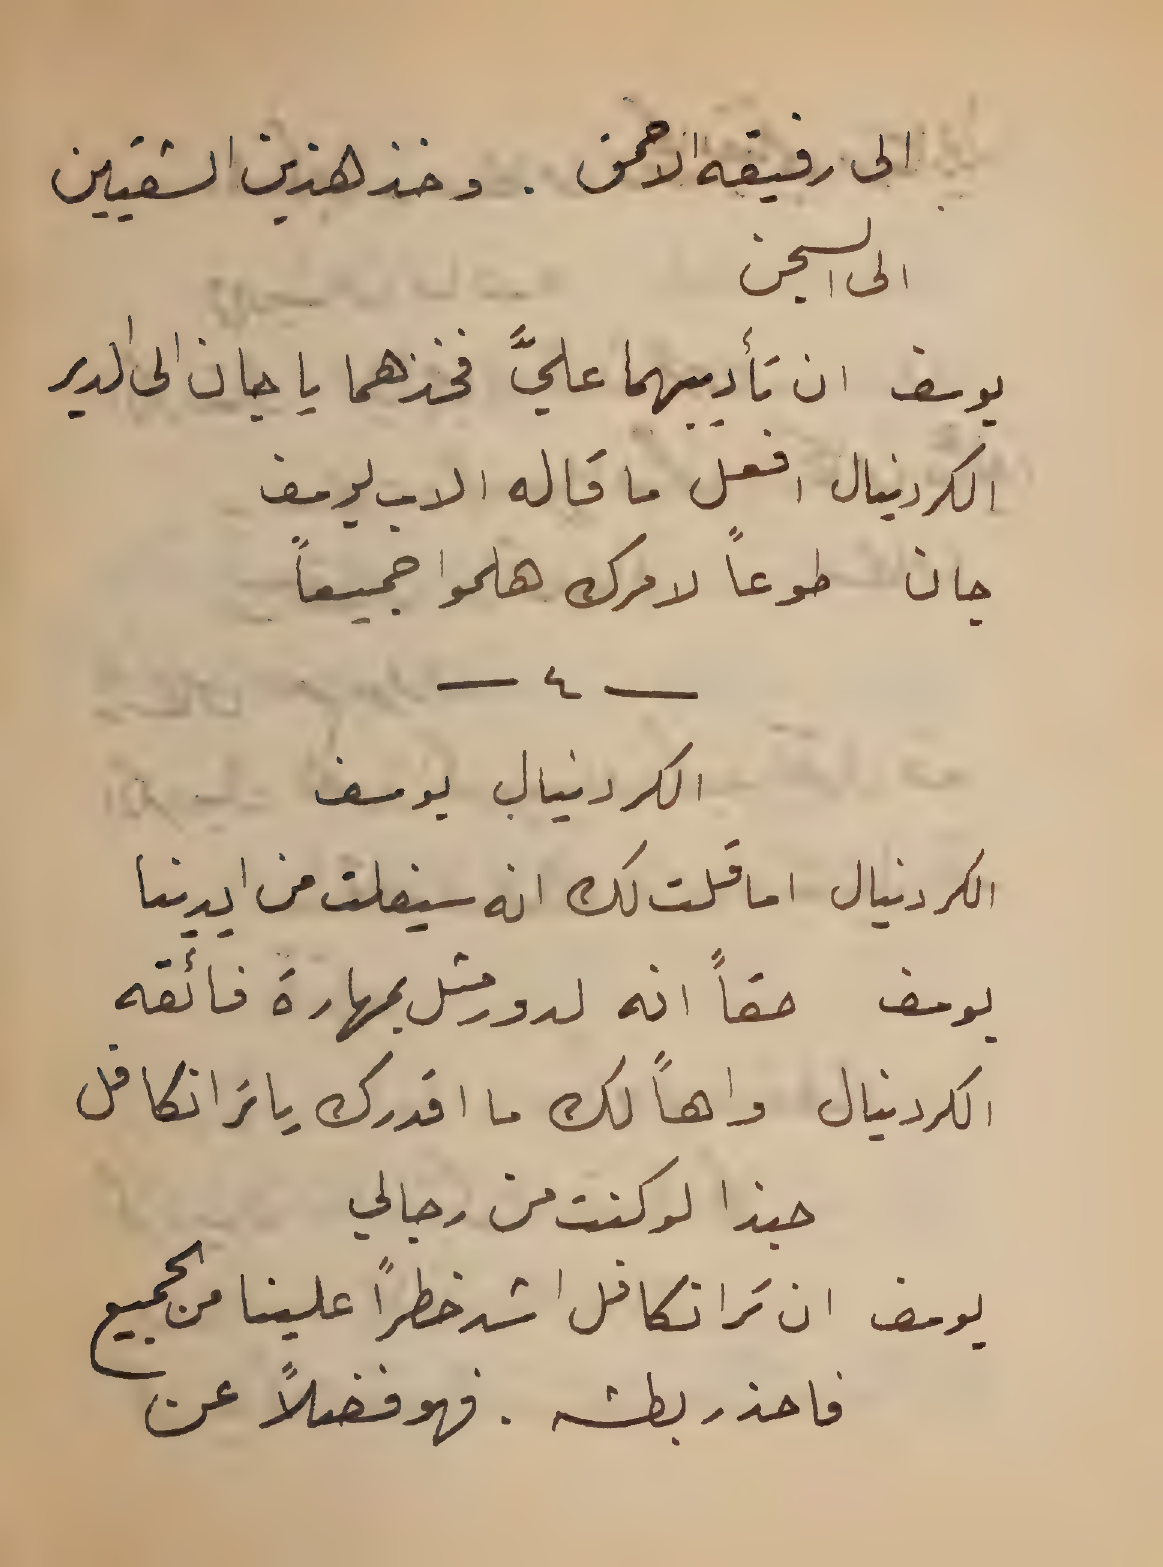 الى رفيقه الاحمق . وخذ هذين الشقيين
الى السجن
يوسف ان تأديبهما عليَّ فخذهما يا جان الى الدير
الكردينال افعل ما قاله الاب يوسف
جان طوعاً لامرك هلموا جميعاً
— ٤ —
الكردينال يوسف
الكردينال اما قلت لك انه سيفلت من ايدينا
يوسف حقاً انه لدور مثل بمهارة فائقه
الكردينال واهاً لك ما اقدرك يا ترانكافل
حبذا لو كنت من رجالي
يوسف ان ترانكافل اشد خطراً علينا من الجميع
فاحذر بطشه . فهو فضلاً عن